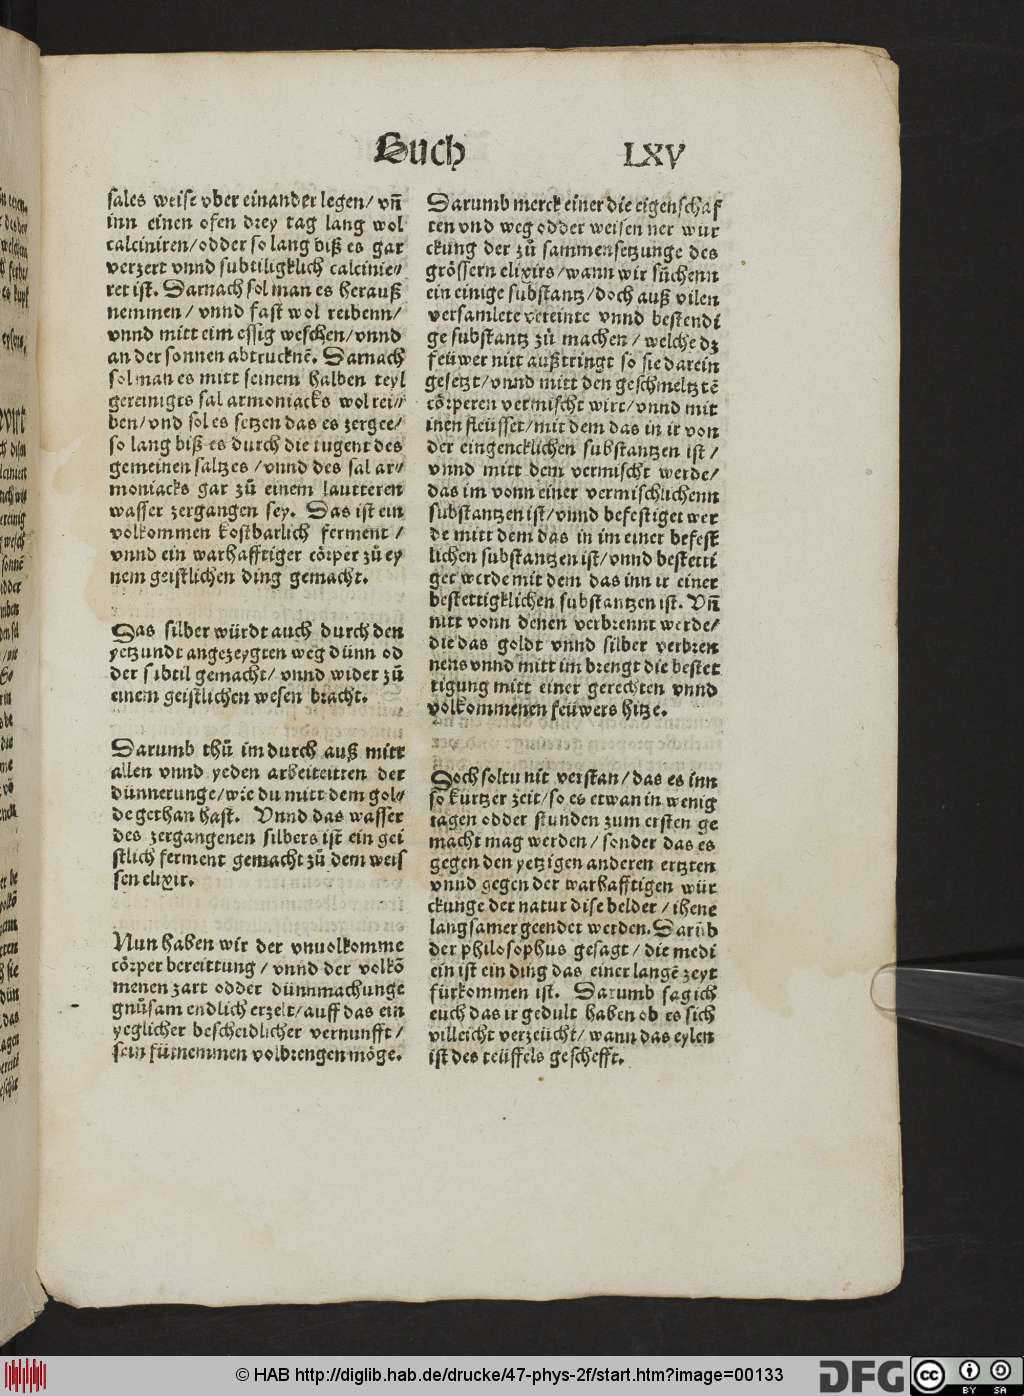 Buch LXV
sales weise vber einander legen/ vn̄
inn einen ofen drey tag lang wol
calciniren/odder so lang biß es gar
verzert vnnd subtiligklich calcinie⸗
ret ist. Darnach sol man es herauß
nemmen/ vnnd fast wol reibenn/
vnnd mitt eim essig weschen/vnnd
an der sonnen abtrucknē. Darnach
sol man es mitt seinem halben teyl
gereinigts sal armoniacks wol rei⸗
ben/vnd sol es setzen das es zergee/
so lang biß es durch die tugent des
gemeinen saltzes /vnnd des sal ar⸗
moniacks gar zů einem lautteren
wasser zergangen sey. Das ist ein
volkommen kostbarlich ferment /
vnnd ein warhafftiger cörper zů ey
nem geistlichen ding gemacht.
Das silber würdt auch durch den
yetzundt angezeygten weg dünn od
der subtil gemacht/ vnnd wider zů
einem geistlichen wesen bracht.
Darumb thů im durch auß mitt
allen vnnd yeden arbeiteitten der
dünnerunge/wie du mitt dem gol⸗
de gethan hast. Vnnd das wasser
des zergangenen silbers ist ein gei
stlich ferment gemacht zů dem weis
sen elixir.
Nun haben wir der vnuolkomme
cörper bereittung/ vnnd der volkō
menen zart odder dünnmachunge
gnůsam endlich erzelt/auff das ein
yeglicher bescheidlicher vernunfft/
sein fürnemmen volbrengen möge.
Darumb merck einer die eigenschaf
ten vnd weg odder weisen ner wur
ckung der zů sammensetzunge des
grössern elixirs/wann wir sůchenn
ein einige substantz/doch auß vilen
versamlete vereinte vnnd bestendi
ge substantz zů machen/ welche dz
feüwer nitt außtringt so sie darein
gesetzt/vnnd mitt den geschmeltztē
cörperen vermischt wirt/vnnd mit
inen fleüsset/mit dem das in ir von
der eingencklichen substantzen ist /
vnnd mitt dem vermischt werde/
das im vonn einer vermischlichenn
substantzen ist/vnnd befestiget wer
de mitt dem das in im einer befest
lichen substantzen ist/vnnd bestetti
get werde mit dem das inn ir einer
bestettigklichen substantzen ist. Vn̄
nitt vonn denen verbrennt werde/
die das goldt vnnd silber verbren
nens vnnd mitt im brengt die bestet
tigung mitt einer gerechten vnnd
volkommenen feüwers hitze.
Doch soltu nit verstan/das es inn
so kurtzer zeit/so es etwan in wenig
tagen odder stunden zum ersten ge
macht mag werden/ sonder das es
gegen den yetzigen anderen ertzten
vnnd gegen der warhafftigen wür
ckunge der natur dise belder /ihene
langsamer geendet werden. Darüb
der philosophus gesagt/die medi
ein ist ein ding das einer langē zeyt
fürkommen ist. Darumb sag ich
euch das ir gedult haben ob es sich
villeicht verzeücht/ wann das eylen
ist des teüffels geschefft.
© HAB http://diglib.hab.de/drucke/47-phys-2f/start.htm?image=00133
DFG
cc BY SA